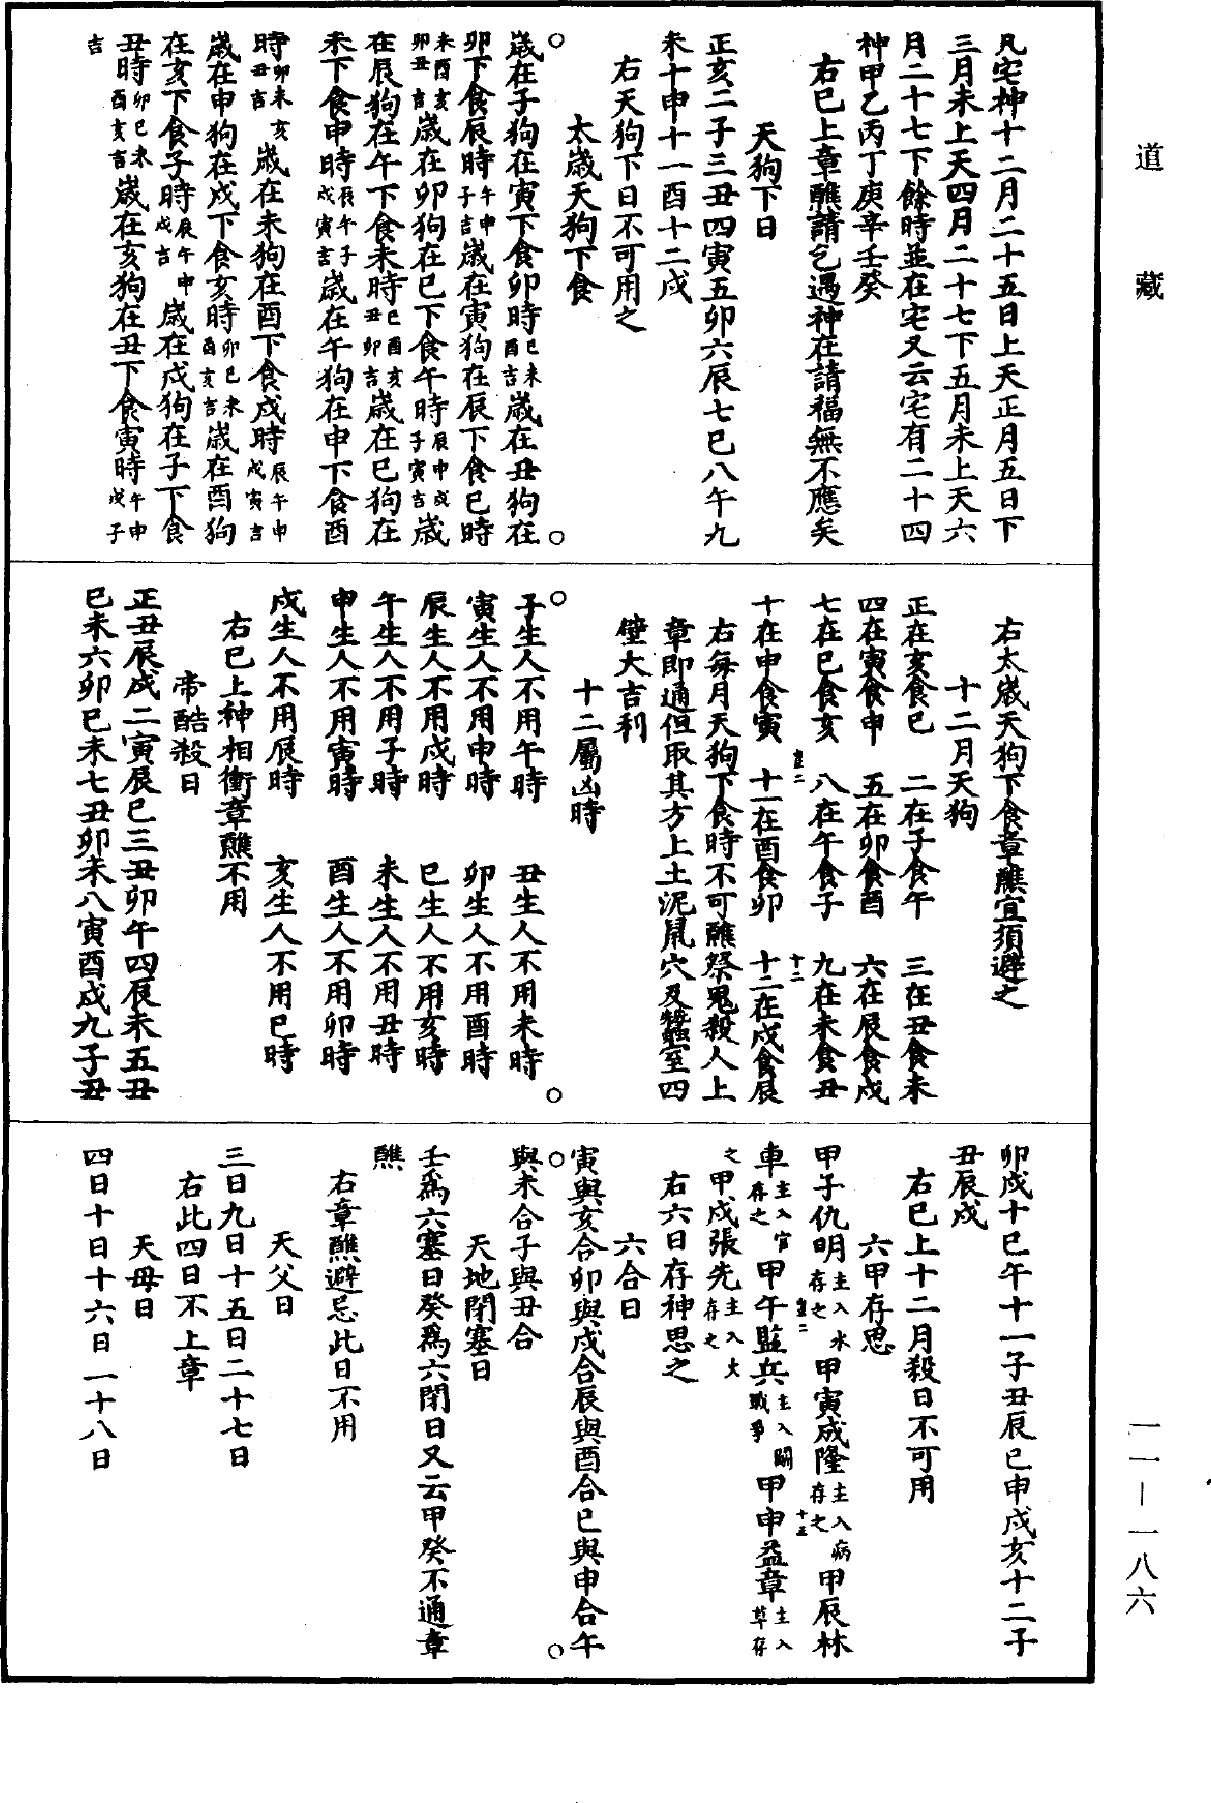 道藏
凡宅神十二月二十五日上天正月五日下
三月未上天四月二十七下五月未上天六
月二十七下餘時並在宅又云宅有二十四
神甲乙丙丁庚辛壬癸
右已上章醮請乞遇神在請福無不應矣
天狗下日
正亥二子三丑四寅五卯六辰七巳八午九
未十申十一酉十二戌
右天狗下日不可用之
太歲天狗下食
歲在子狗在寅下食卯時巳未酉吉歲在丑狗在
卯下食辰時午申子吉歲在寅狗在辰下食巳時
未酉亥卯丑吉歲在卯狗在巳下食午時辰申戌子寅吉歲
在辰狗在午下食未時巳酉亥丑卯吉歲在巳狗在
未下食申時辰午子戌寅吉歲在午狗在申下食酉
時卯未亥丑吉歲在未狗在酉下食戌時辰午申戌寅吉
歲在申狗在戌下食亥時卯巳未酉亥吉歲在酉狗
在亥下食子時辰午申戌吉歲在戌狗在子下食
丑時卯巳未卯酉亥吉歲在亥狗在丑下食寅時午申戌子
吉
右太歲天狗下食章醮宜須避之
十二月天狗
正在亥食巳 二在子食午 三在丑食未
四在寅食申 五在卯食酉 六在辰食戌
七在巳食亥 八在午食子 九在未食丑
十在申食寅 十一在酉食卯 十二在戌食辰
右每月天狗下食時不可醮祭鬼殺人上
章即通但取其方上土泥鼠穴及蠶室四
壁大吉利
十二屬凶時
子生人不用午時 丑生人不用未時
寅生人不用申時 卯生人不用酉時
辰生人不用戌時 巳生人不用亥時
午生人不用子時 未生人不用丑時
申生人不用寅時 酉生人不用卯時
戌生人不用辰時 亥生人不用巳時
右已上神相衝章醮不用
帝酷殺日
正丑辰戌二寅辰巳三丑卯午四辰未五丑
巳未六卯巳未七丑卯未八寅酉戌九子丑
卯戌十巳午十一子丑辰巳申戌亥十二子
丑辰戌
右已上十二月殺日不可用
六甲存思
甲子仇明主入水存之甲寅成隆主入病存之甲辰林
車主入官存之甲午監兵主入鬭戰爭甲申益章主入草存
之甲戌張先主入火存之
右六日存神思之
六合日
寅與亥合卯與戌合辰與酉合巳與申合午
與未合子與丑合
天地閉塞日
壬為六塞日癸為六閉日又云甲癸不通章
醮
右章醮避忌此日不用
天父日
三日九日十五日二十七日
右此四日不上章
天母日
四日十日十六日一十八日
一一—一八六